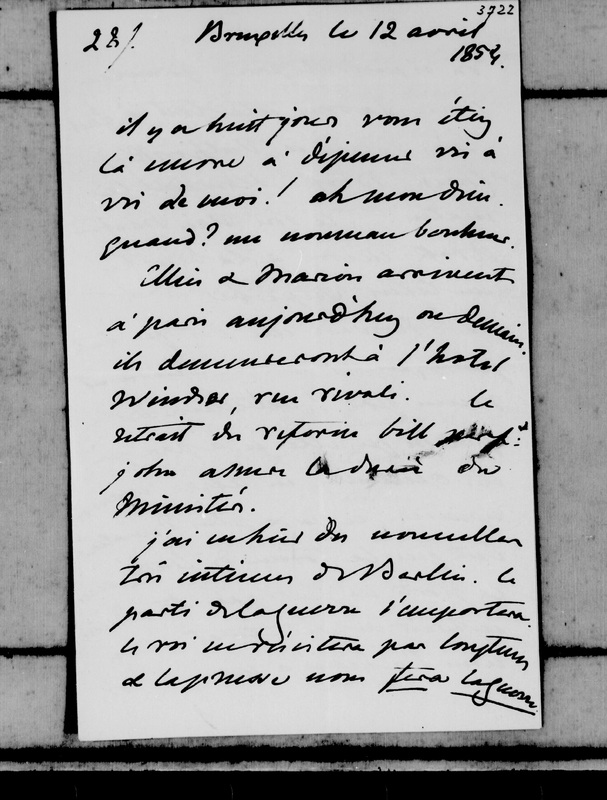 3722
28/. Bruxelles le 12 avril
1854.
il y a huit jours vous étiez
là encore à déjeuner vis à
vis de moi ! ah mon dieu.
quand ? un nouveau bonheur.
Ellice & Marion arrivent
à paris aujourd'huy ou demain.
ils demeureront à l'hotel
Windsor, rue rivoli. le
retrait du reforme bill
john assure la durée du
Ministère.
j'ai eu hier des nouvelles
très intimes de Berlin. le
parti de la guerre l'emportera.
le roi ne résistera pas longtems
& la prusse nous fera la guerre.